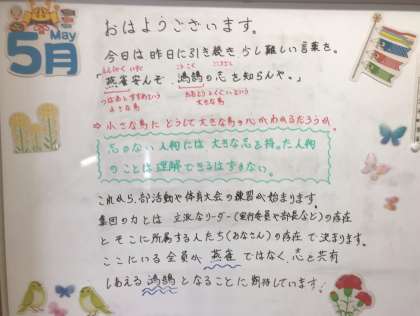 May
5月
おはようございます。
今日は昨日に引き続き、少し難しい言葉を。
えんじゃく いずく こうこく こころざし
燕雀安んぞ 鴻鵠の志を知らんや。」
つばめとすずめという
小さな鳥
大きな鳥
⇒小さな鳥にどうして大きな鳥の心がわかるだろうか。
志のない人物には大きな志を持った人物
のことは理解できるはずがない。
これから、部活動や体育大会の練習が始まります。
集団の力とは 立派なリーダー(実行委員や部長など)の存在
とそこに所属する人たち(あなたさん)の存在で決まります。
ここにいる全員が燕雀ではなく、志を共有
しあえる鴻鵠となることに期待しています!